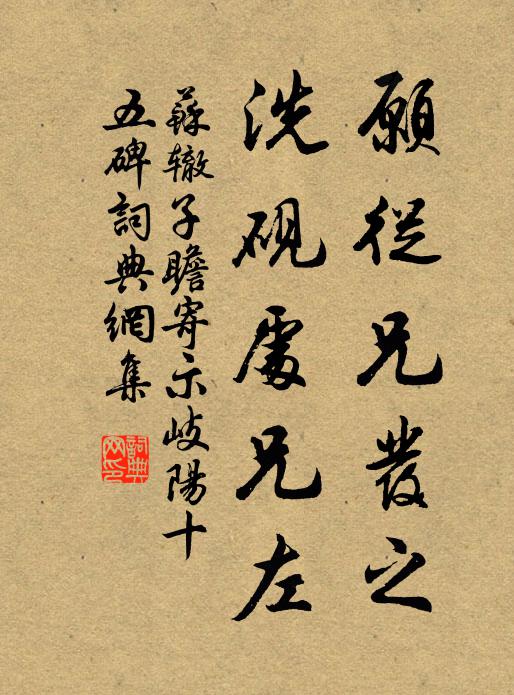 願從兄發之
洗硯處兄左
蘇辙子瞻寄示岐陽十
五碑詞典網集
詞典
网印